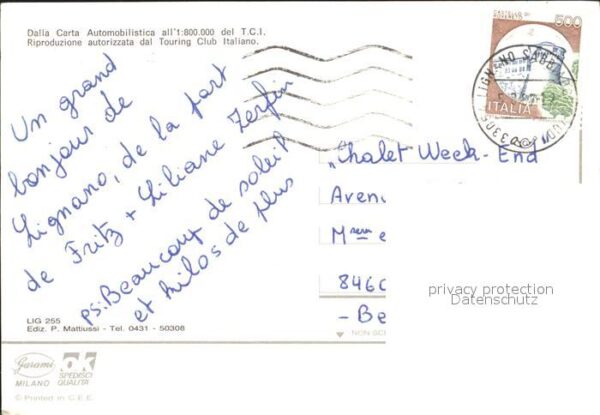 Dalla Carta Automobilistica all'1:800.000 del T.C.I.
Riproduzione autorizzata dal Touring Club Italiano.
500
ITALIA
LIGNANO SABB
Un grand
bonjour de
Lignano, de la part
de Fritz + Liliane Zerfin
ps: Beaucoup de soleil
et kilos de plus
"Chalet Week-End
Aven
Mme e
8460
- Be
privacy protection
Datenschutz
LIG 255
Ediz. P. Mattiussi - Tel. 0431 - 50308
Garami
MILANO
ok
SPEDISCI
QUALITÀ
© Printed in C.E.E.